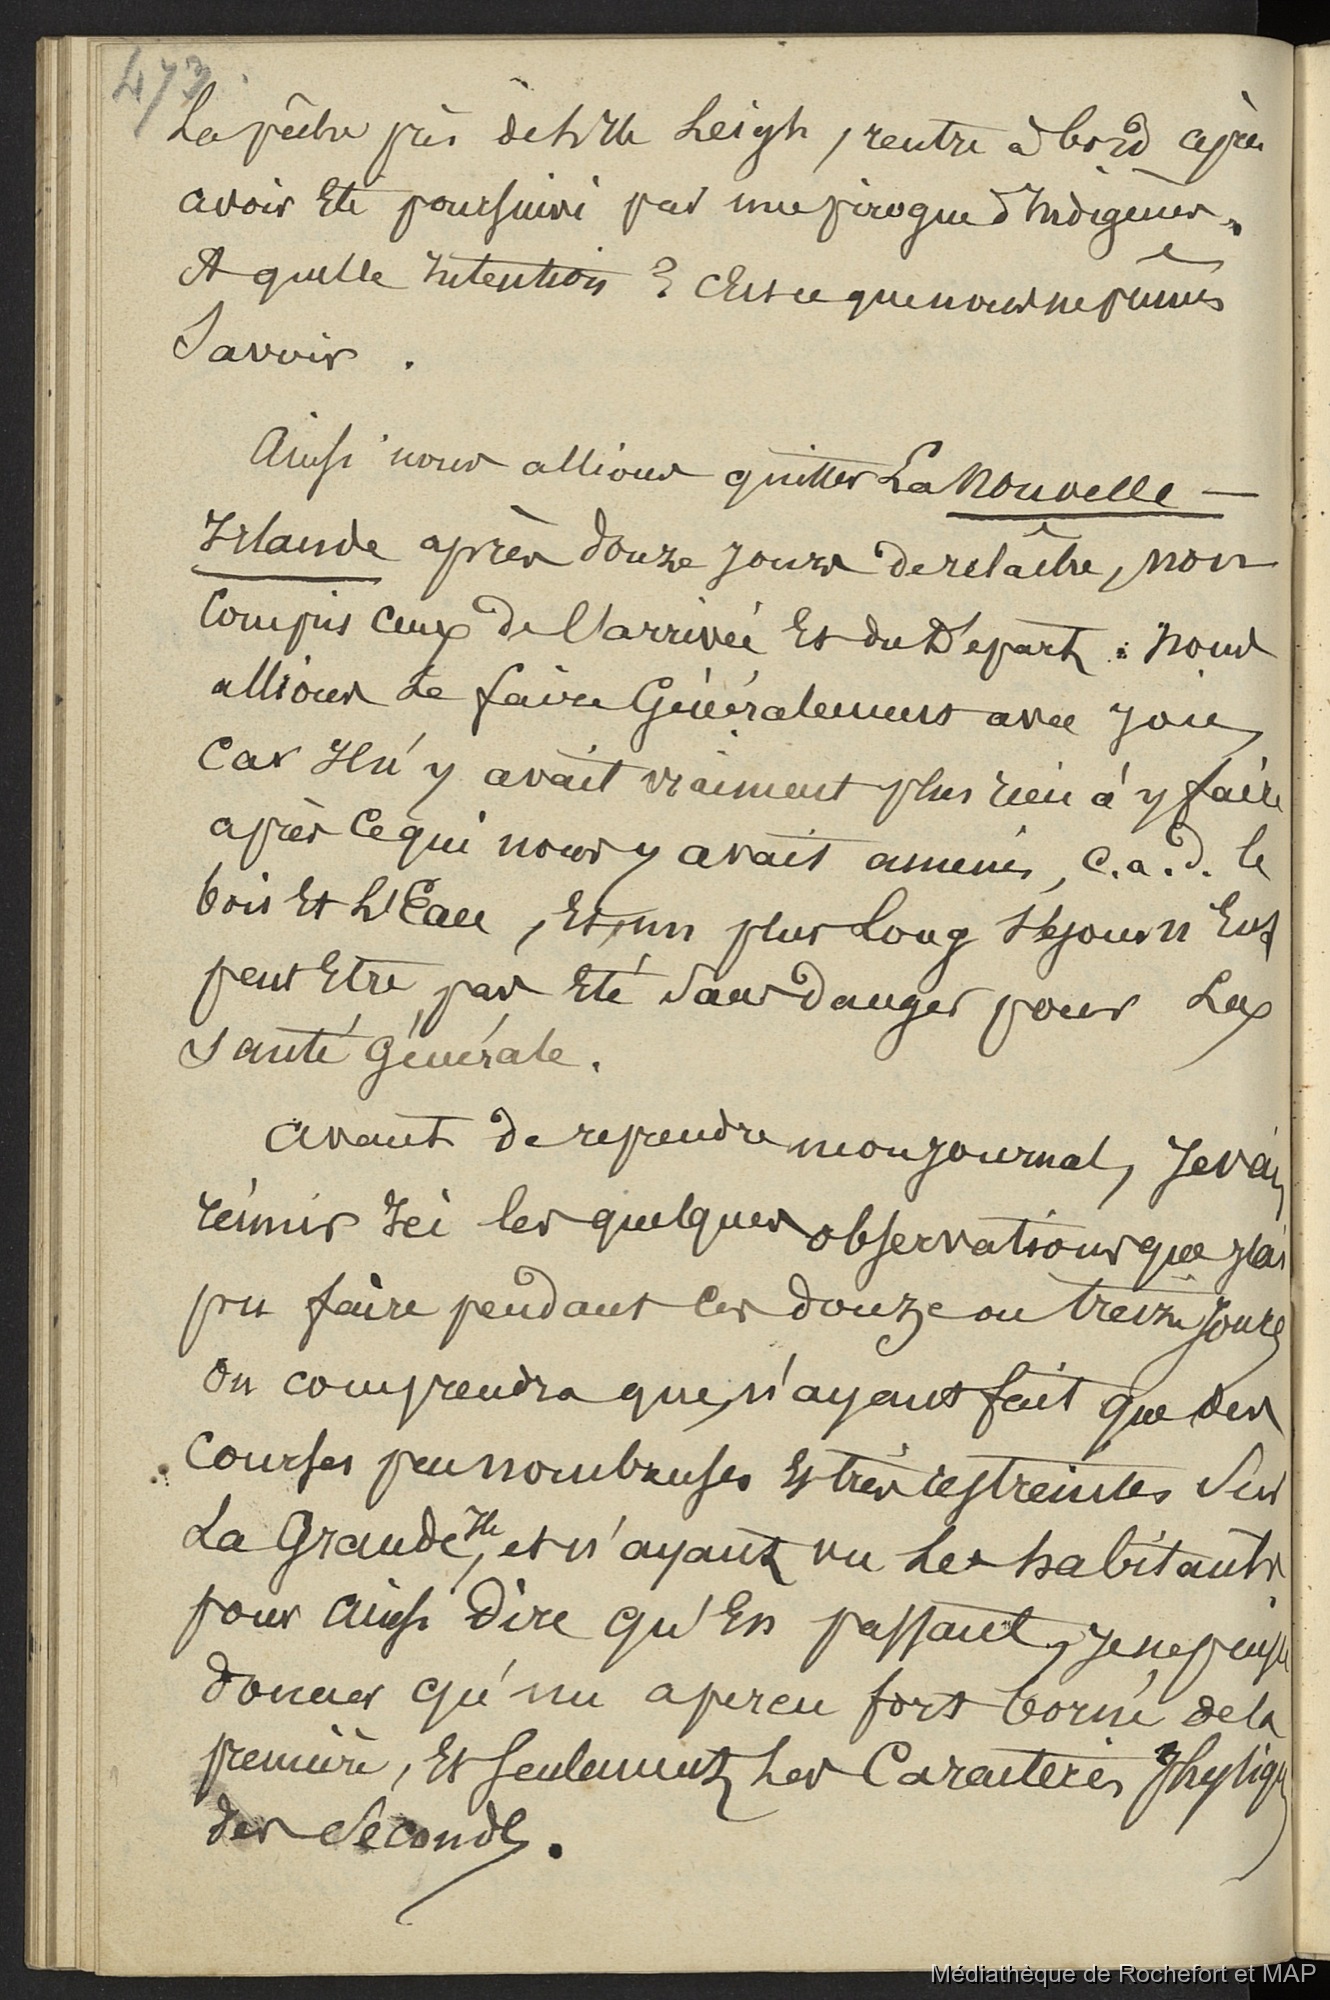 473
La pêche près de l'Ile Leigh, rentre à bord après
avoir été poursuivi par une pirogue d'Indigènes.
A quelle Intention ? C'est ce que nous ne pûmes
Savoir .
Ainsi nous allions quitter La Nouvelle —
Irlande après douze jours de relâche, non
Compris ceux de l'arrivée Et du Départ : nous
allions Le faire Généralement avec joie,
Car Il n'y avait vraiment plus rien à y faire
après Ce qui nous y avait amenés, c.a.d. le
bois Et L'Eau, Et un plus Long Séjour n'Eut
peut Etre pas Eté Sans Danger pour La
Santé Générale.
Avant de reprendre mon journal, Je vais
réunir Ici les quelques observations que j'ai
pu faire pendant Ces douze ou treize Jours
On comprendra que, n'ayant fait que des
Courses peu nombreuses Et très restreintes Sur
La Grande Ile, et n'ayant vu Les habitants
pour Ainsi Dire qu'En passant, je ne puisse
donner qu'un apercu fort borné de la
première, Et Seulement Les Caractères Physiqu
des Seconds.
Médiathèque de Rochefort et MAP